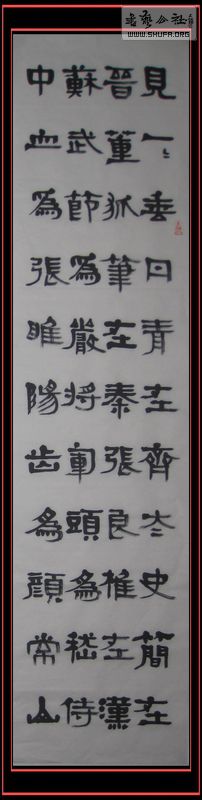 書藝公社
WWW.SHUFA.ORG
見一〻垂丹青在齊太史簡在
晉董狐筆在秦張良椎在漢
蘇武節為嚴將軍頭為嵇侍
中血為張睢陽齒為顏常山